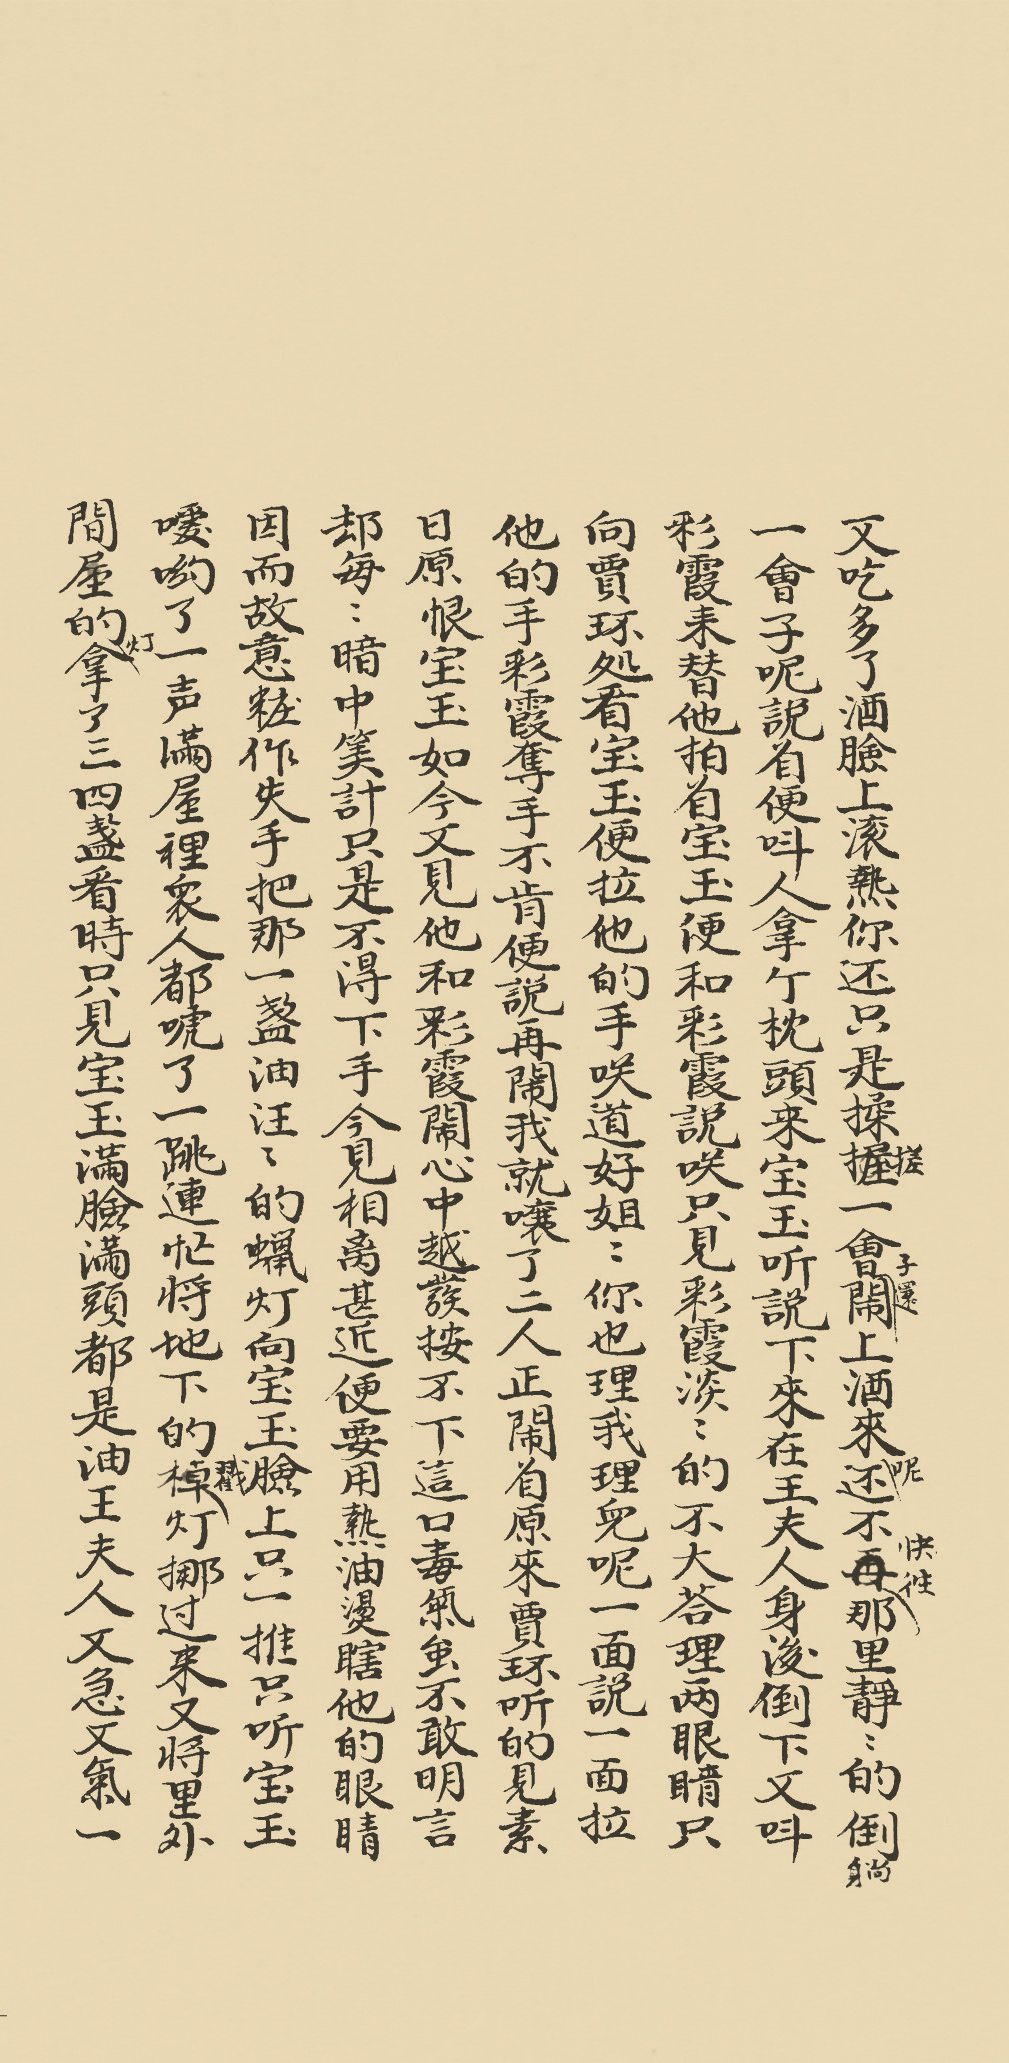 又吃多了酒臉上滚熱你还只是揉握搓一會子還鬧上酒來还呢不再快往那里靜〻的倒躺
一會子呢說着便呌人拿个枕頭来宝玉听說下來在王夫人身後倒下又呌
彩霞来替他拍着宝玉便和彩霞說咲只見彩霞淡〻的不大荅理两眼睛只
向賈环处看宝玉便拉他的手咲道好姐〻你也理我理兒呢一面說一面拉
他的手彩霞奪手不肯便說再鬧我就嚷了二人正鬧着原來賈环听的見素
日原恨宝玉如今又見他和彩霞鬧心中越發按不下這口毒氣虽不敢明言
却每〻暗中筭計只是不得下手今見相离甚近便要用熱油燙瞎他的眼睛
因而故意粧作失手把那一盞油汪〻的蠟灯向宝玉臉上只一推只听宝玉
嗳喲了一声滿屋裡衆人都唬了一跳連忙将地下的棹戳灯挪过来又将里外
間屋的灯拿了三四盞看時只見宝玉滿臉滿頭都是油王夫人又急又氣一